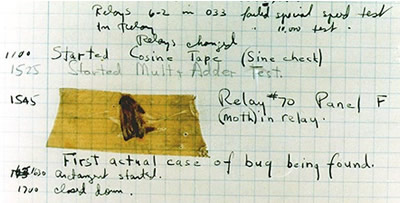 Relays 6-2 in 033 failed special speed test
In Relay " 10,000 test.
Relays changed
1100 Started Cosine Tape (Sine check)
1525 Started Mult + Adder Test.
1545 Relay #70 Panel F
(moth) in relay.
First actual case of bug being found.
1630 antangent started.
1700 closed down.